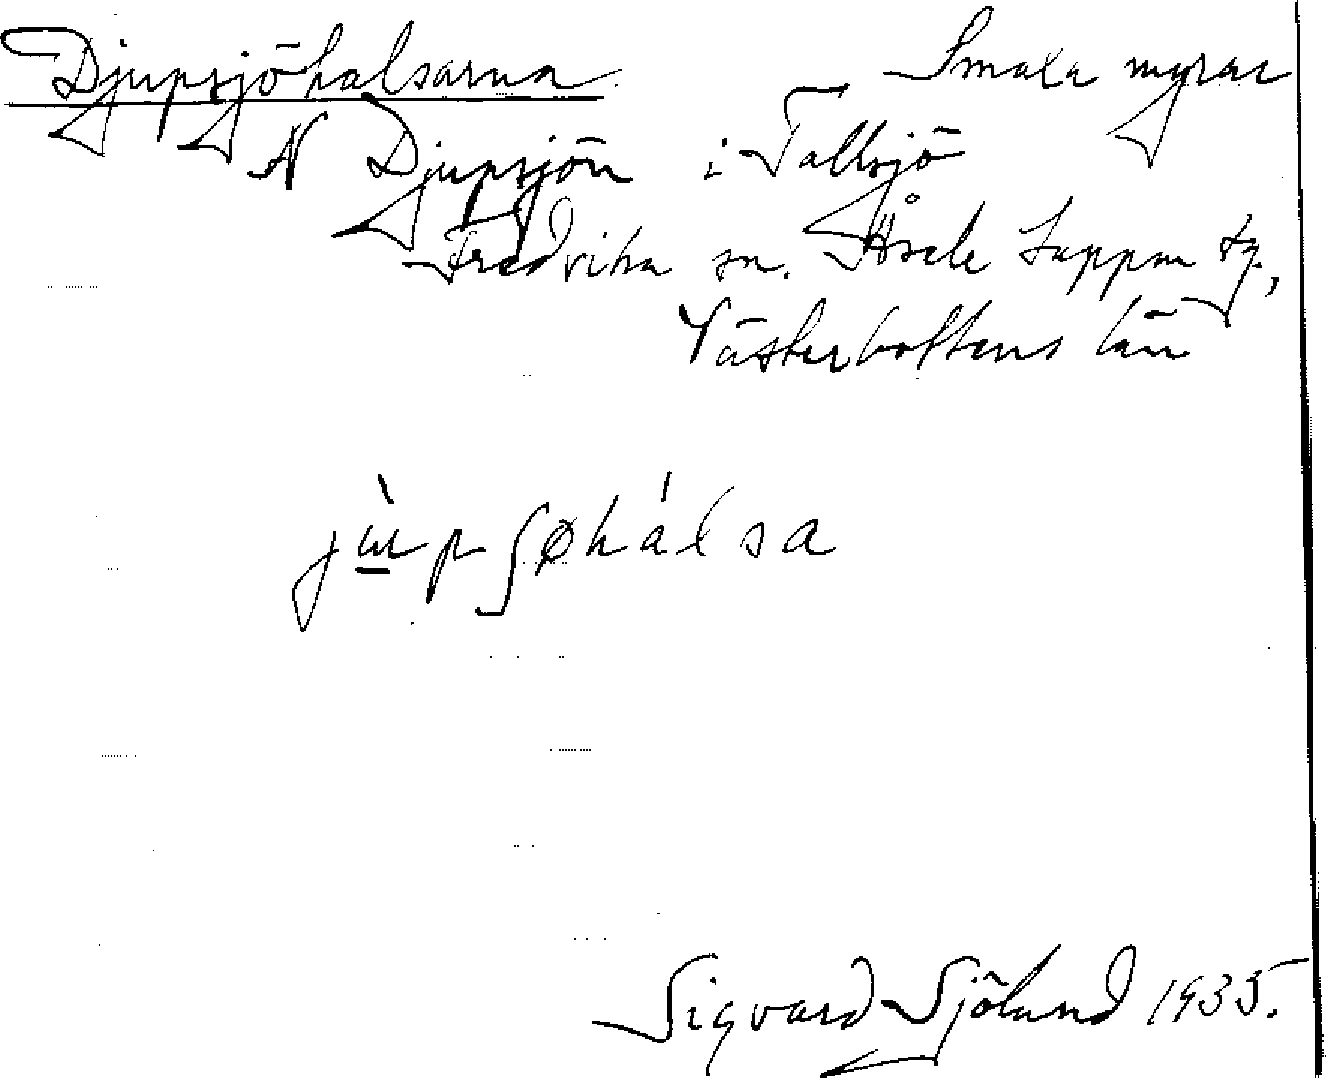 Djupsjöhalsarna. Smala myrar
N Djupsjön i Tallsjö
Fredrika sn. Åsele Lappm tg,
Västerbottens län
jùpʃøhálsa
Sigvard Sjölund 1935.